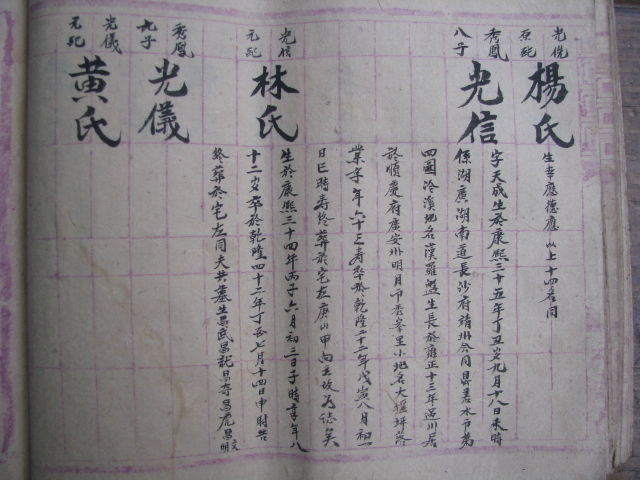 光儁
原配
楊氏
生幸應德應以上十四名同
秀鳳
八子
光信
字天成生於康熙三十五年丁丑岁九月十八日未時
係湖廣湖南道長沙府靖州會同县善水市第
四圖冷溪地名漢羅盤生長於雍正十三年迁川居
於順慶府廣安州明月市秀峯里小地名大堰坪落
業享年六十三寿卒於乾隆二十二年戊寅八月初一
日巳時寿終葬於宅左庚山甲向立故为誌矣
光信
元配
林氏
生於康熙三十四年丙子六月初三日子時享年八
十二岁卒於乾隆四十二年丁酉七月十四日申時告
終葬於宅左同夫共墓生昌武昌龍昌寿昌虎昌文明
秀鳳
九子
光儀
光儀
元配
黃氏